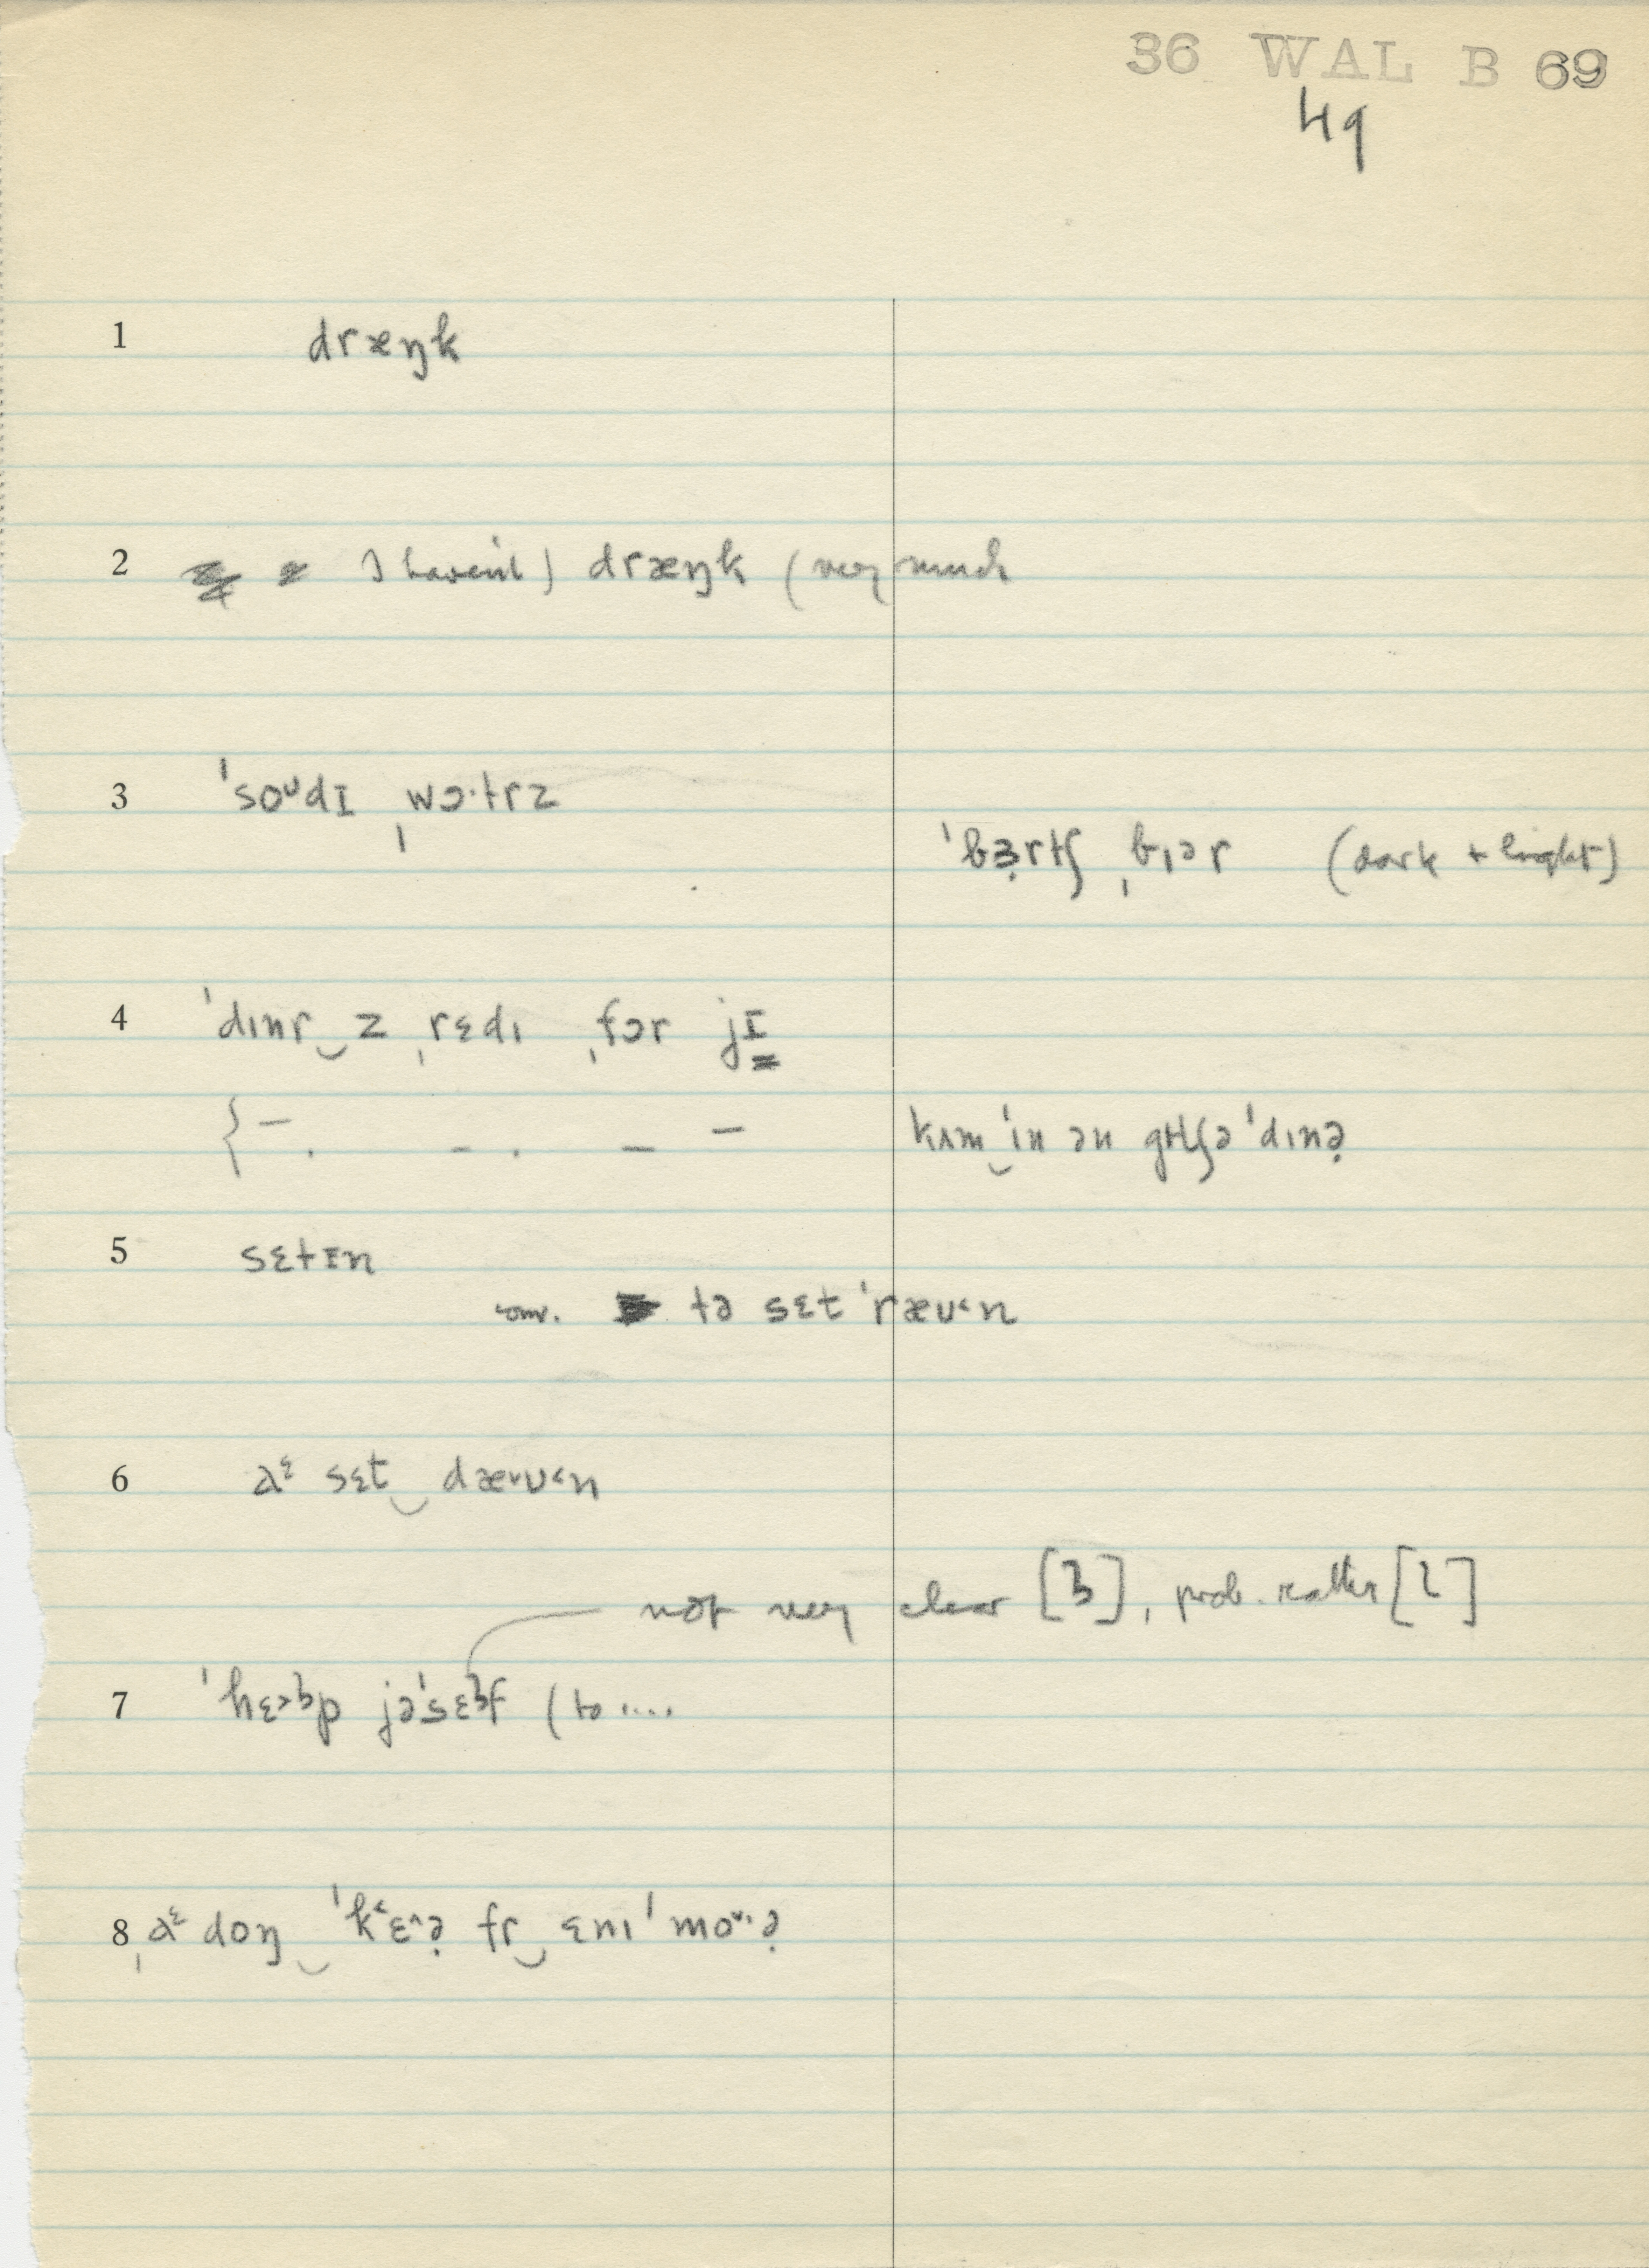 36 WAL B 69
49
1 dræŋk
2 I haven't) dræŋk (very much
3 ˈsoᶷdɪ ˌwɔ·trz
ˈbɜ̣rtʃ ˌbɪər (dark + light)
4 ˈdɪnr‿z ˌrɛdɪ ˌfɔr jɪ
{– . – . – – kʌm‿ˈin ən ˈdɪnə̣
5 sɛtɪn
conv. tə sɛt ˈræu˂n
6 sɛt‿dæ˅u˂n
not very clear [ɜ], prob. rather [l]
7 ˈhɛ˃ɜp jəˈsɛɜf (to ....
8 doŋ‿ˈk˂ɛ˄ə̣ fr‿ɛnɪ ˈmo˅·ə̣